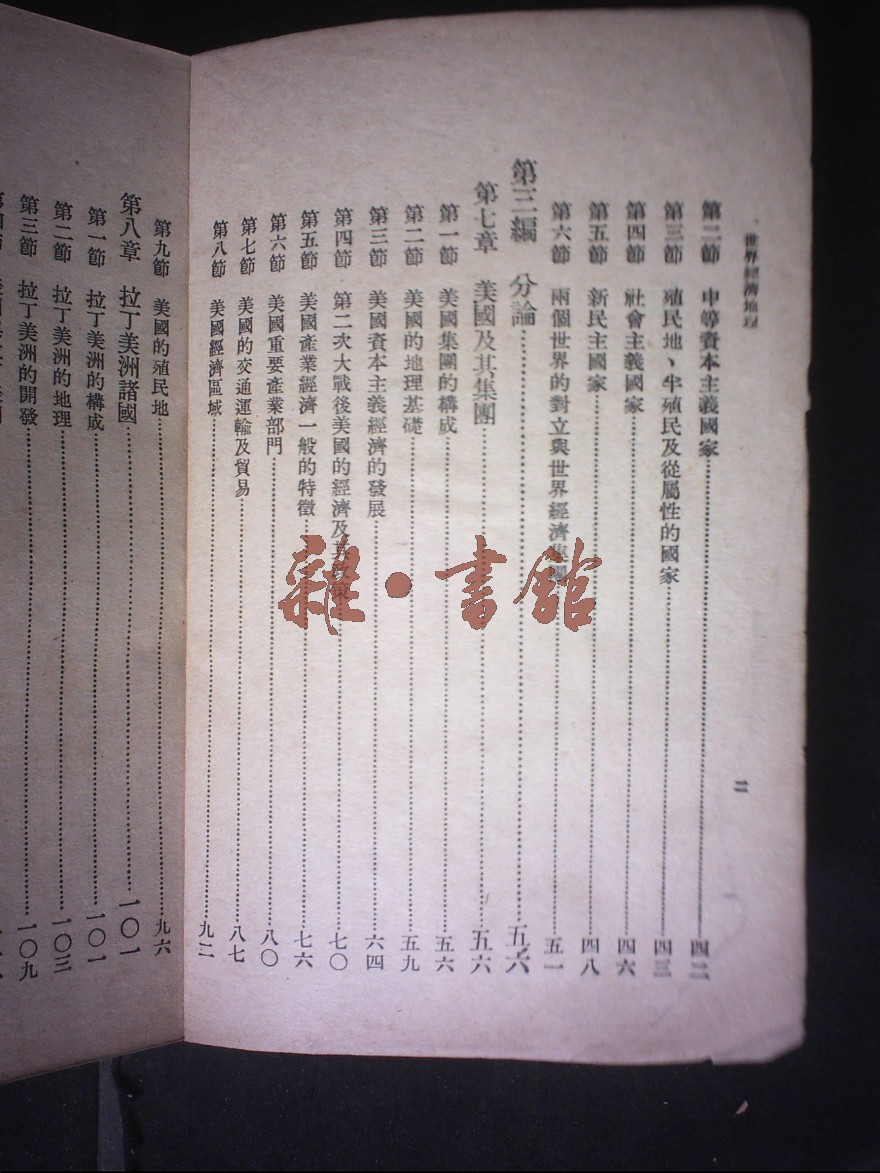 世界經濟地理
二
第二節 中等資本主義國家 四二
第三節 殖民地、半殖民及從屬性的國家 四三
第四節 社會主義國家 四六
第五節 新民主國家 四八
第六節 兩個世界的對立與世界經濟集團 五一
第三編 分論 五六
第七章 美國及其集團 五六
第一節 美國集團的構成 五六
第二節 美國的地理基礎 五九
第三節 美國資本主義經濟的發展 六四
第四節 第二次大戰後美國的經濟及其政策 七〇
第五節 美國產業經濟一般的特徵 七六
第六節 美國重要產業部門 八〇
第七節 美國的交通運輸及貿易 八七
第八節 美國經濟區域 九二
第九節 美國的殖民地 九六
第八章 拉丁美洲諸國 一〇一
第一節 拉丁美洲的構成 一〇一
第二節 拉丁美洲的地理 一〇三
第三節 拉丁美洲的開發 一〇九
雜·書館